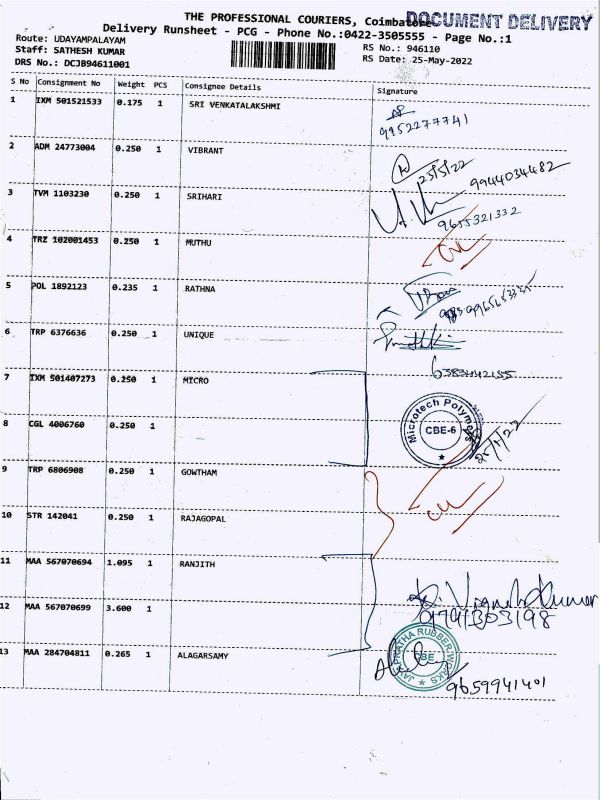 THE PROFESSIONAL COURIERS, Coimbatore
DOCUMENT DELIVERY
Delivery Runsheet - PCG - Phone No.:0422-3505555 - Page No.:1
Route: UDAYAMPALAYAM
RS No.: 946110
Staff: SATHESH KUMAR
RS Date: 25-May-2022
DRS No.: DCJB94611001
S No Consignment No Weight PCS Consignee Details Signature
1 IXM 501521533 0.175 1 SRI VENKATALAKSHMI
9952277741
2 ADM 24773004 0.250 1 VIBRANT
25/5/22 9944034482
3 TVM 1103230 0.250 1 SRIHARI
9655321332
4 TRZ 102001453 0.250 1 MUTHU
5 POL 1892123 0.235 1 RATHNA
6 TRP 6376636 0.250 1 UNIQUE
7 IXM 501407273 0.250 1 MICRO
Microtech Polymers
CBE-6
8 CGL 4006760 0.250 1
9 TRP 6806908 0.250 1 GOWTHAM
10 STR 142041 0.250 1 RAJAGOPAL
11 MAA 567070694 1.095 1 RANJITH
12 MAA 567070699 3.600 1
9791303198
13 MAA 284704811 0.265 1 ALAGARSAMY
RUBBER WORKS
CBE
9659941401